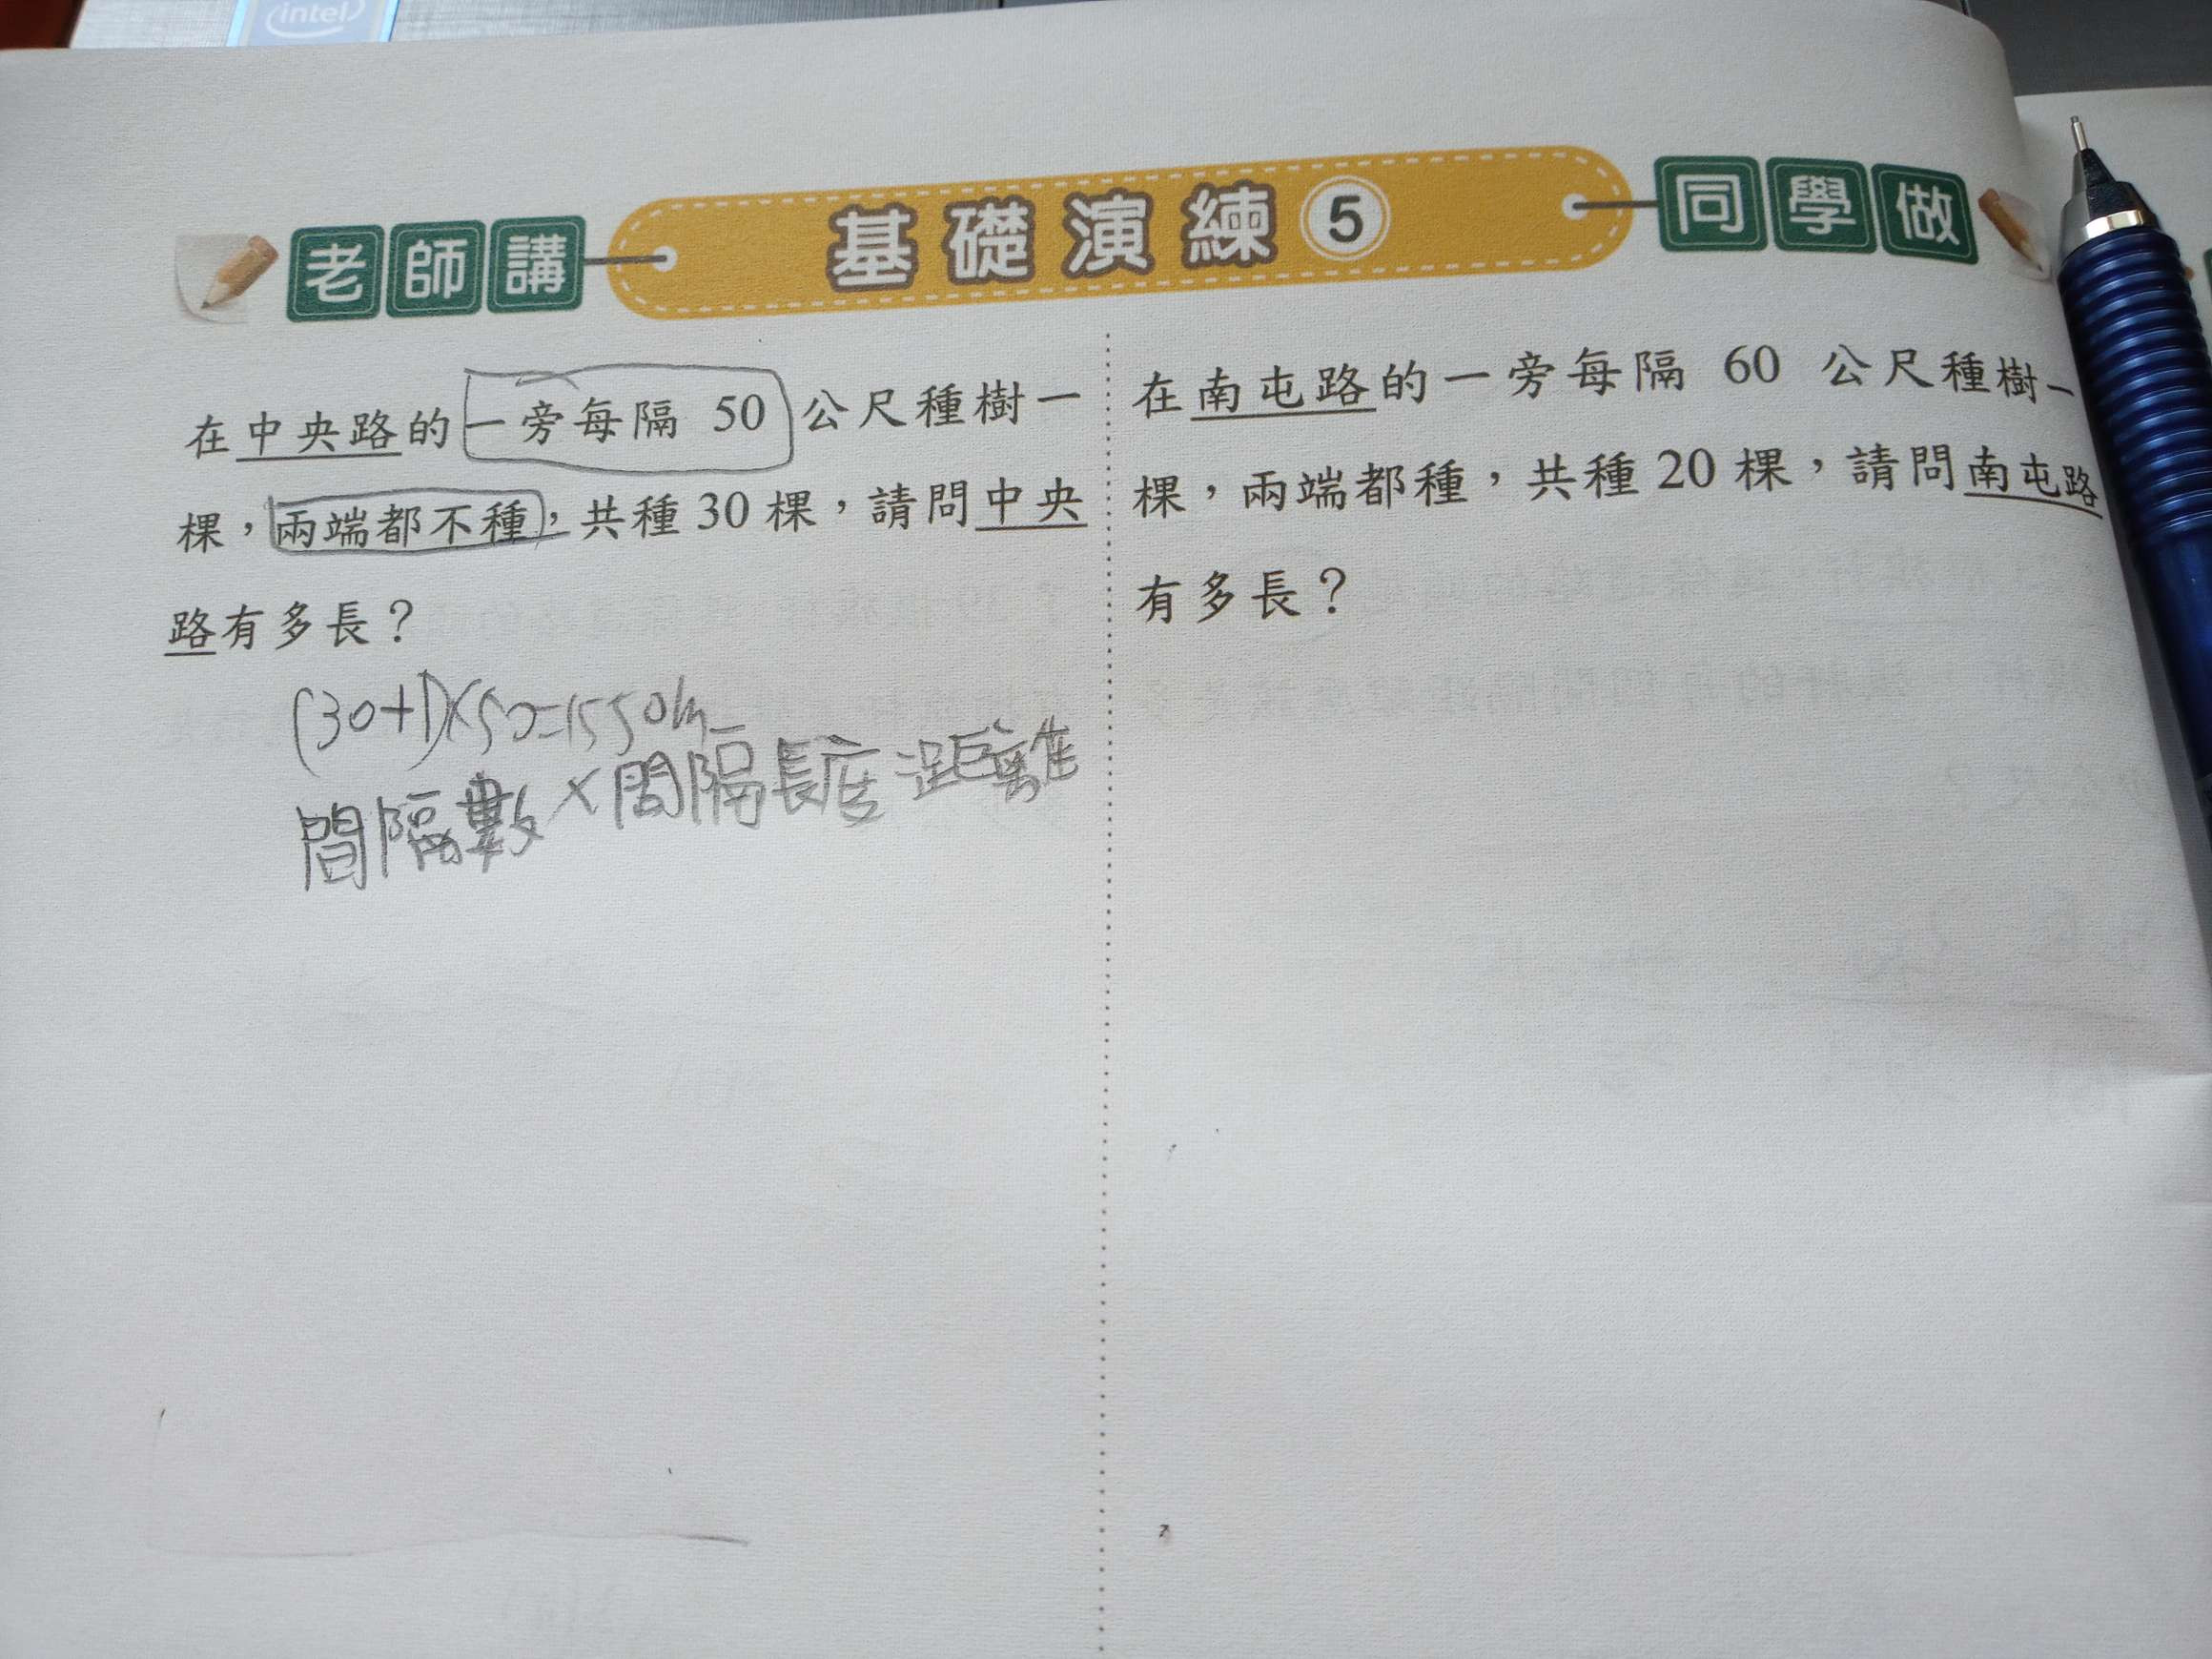 intel
老師講
基礎演練5
同學做
在中央路的一旁每隔 50 公尺種樹一
棵，兩端都不種，共種 30 棵，請問中央
路有多長？
(30+1)×50=1550m
間隔數×間隔長度 距離
在南屯路的一旁每隔 60 公尺種樹一
棵，兩端都種，共種 20 棵，請問南屯路
有多長？